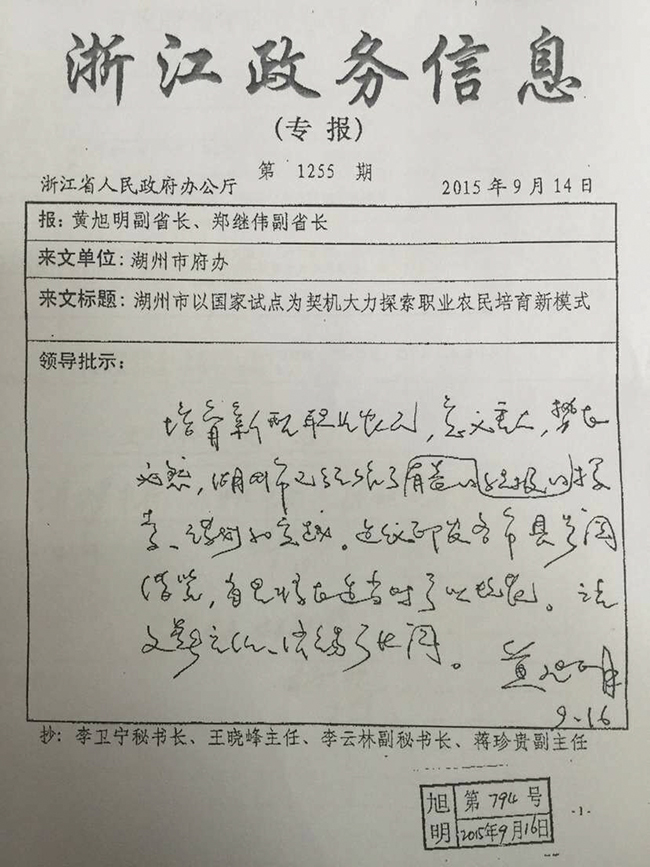 浙江政务信息
(专报)
第 1255 期
浙江省人民政府办公厅 2015年9月14日
报：黄旭明副省长、郑继伟副省长
来文单位：湖州市府办
来文标题：湖州市以国家试点为契机大力探索职业农民培育新模式
领导批示：
培育新型职业农民，意义重大，势在
必然，湖州市已经做了有益的
。建议印发各市县
，
。
黄旭明
9.16
抄：李卫宁秘书长、王晓峰主任、李云林副秘书长、蒋珍贵副主任
旭明 第 794 号
2015年9月16日
-1-